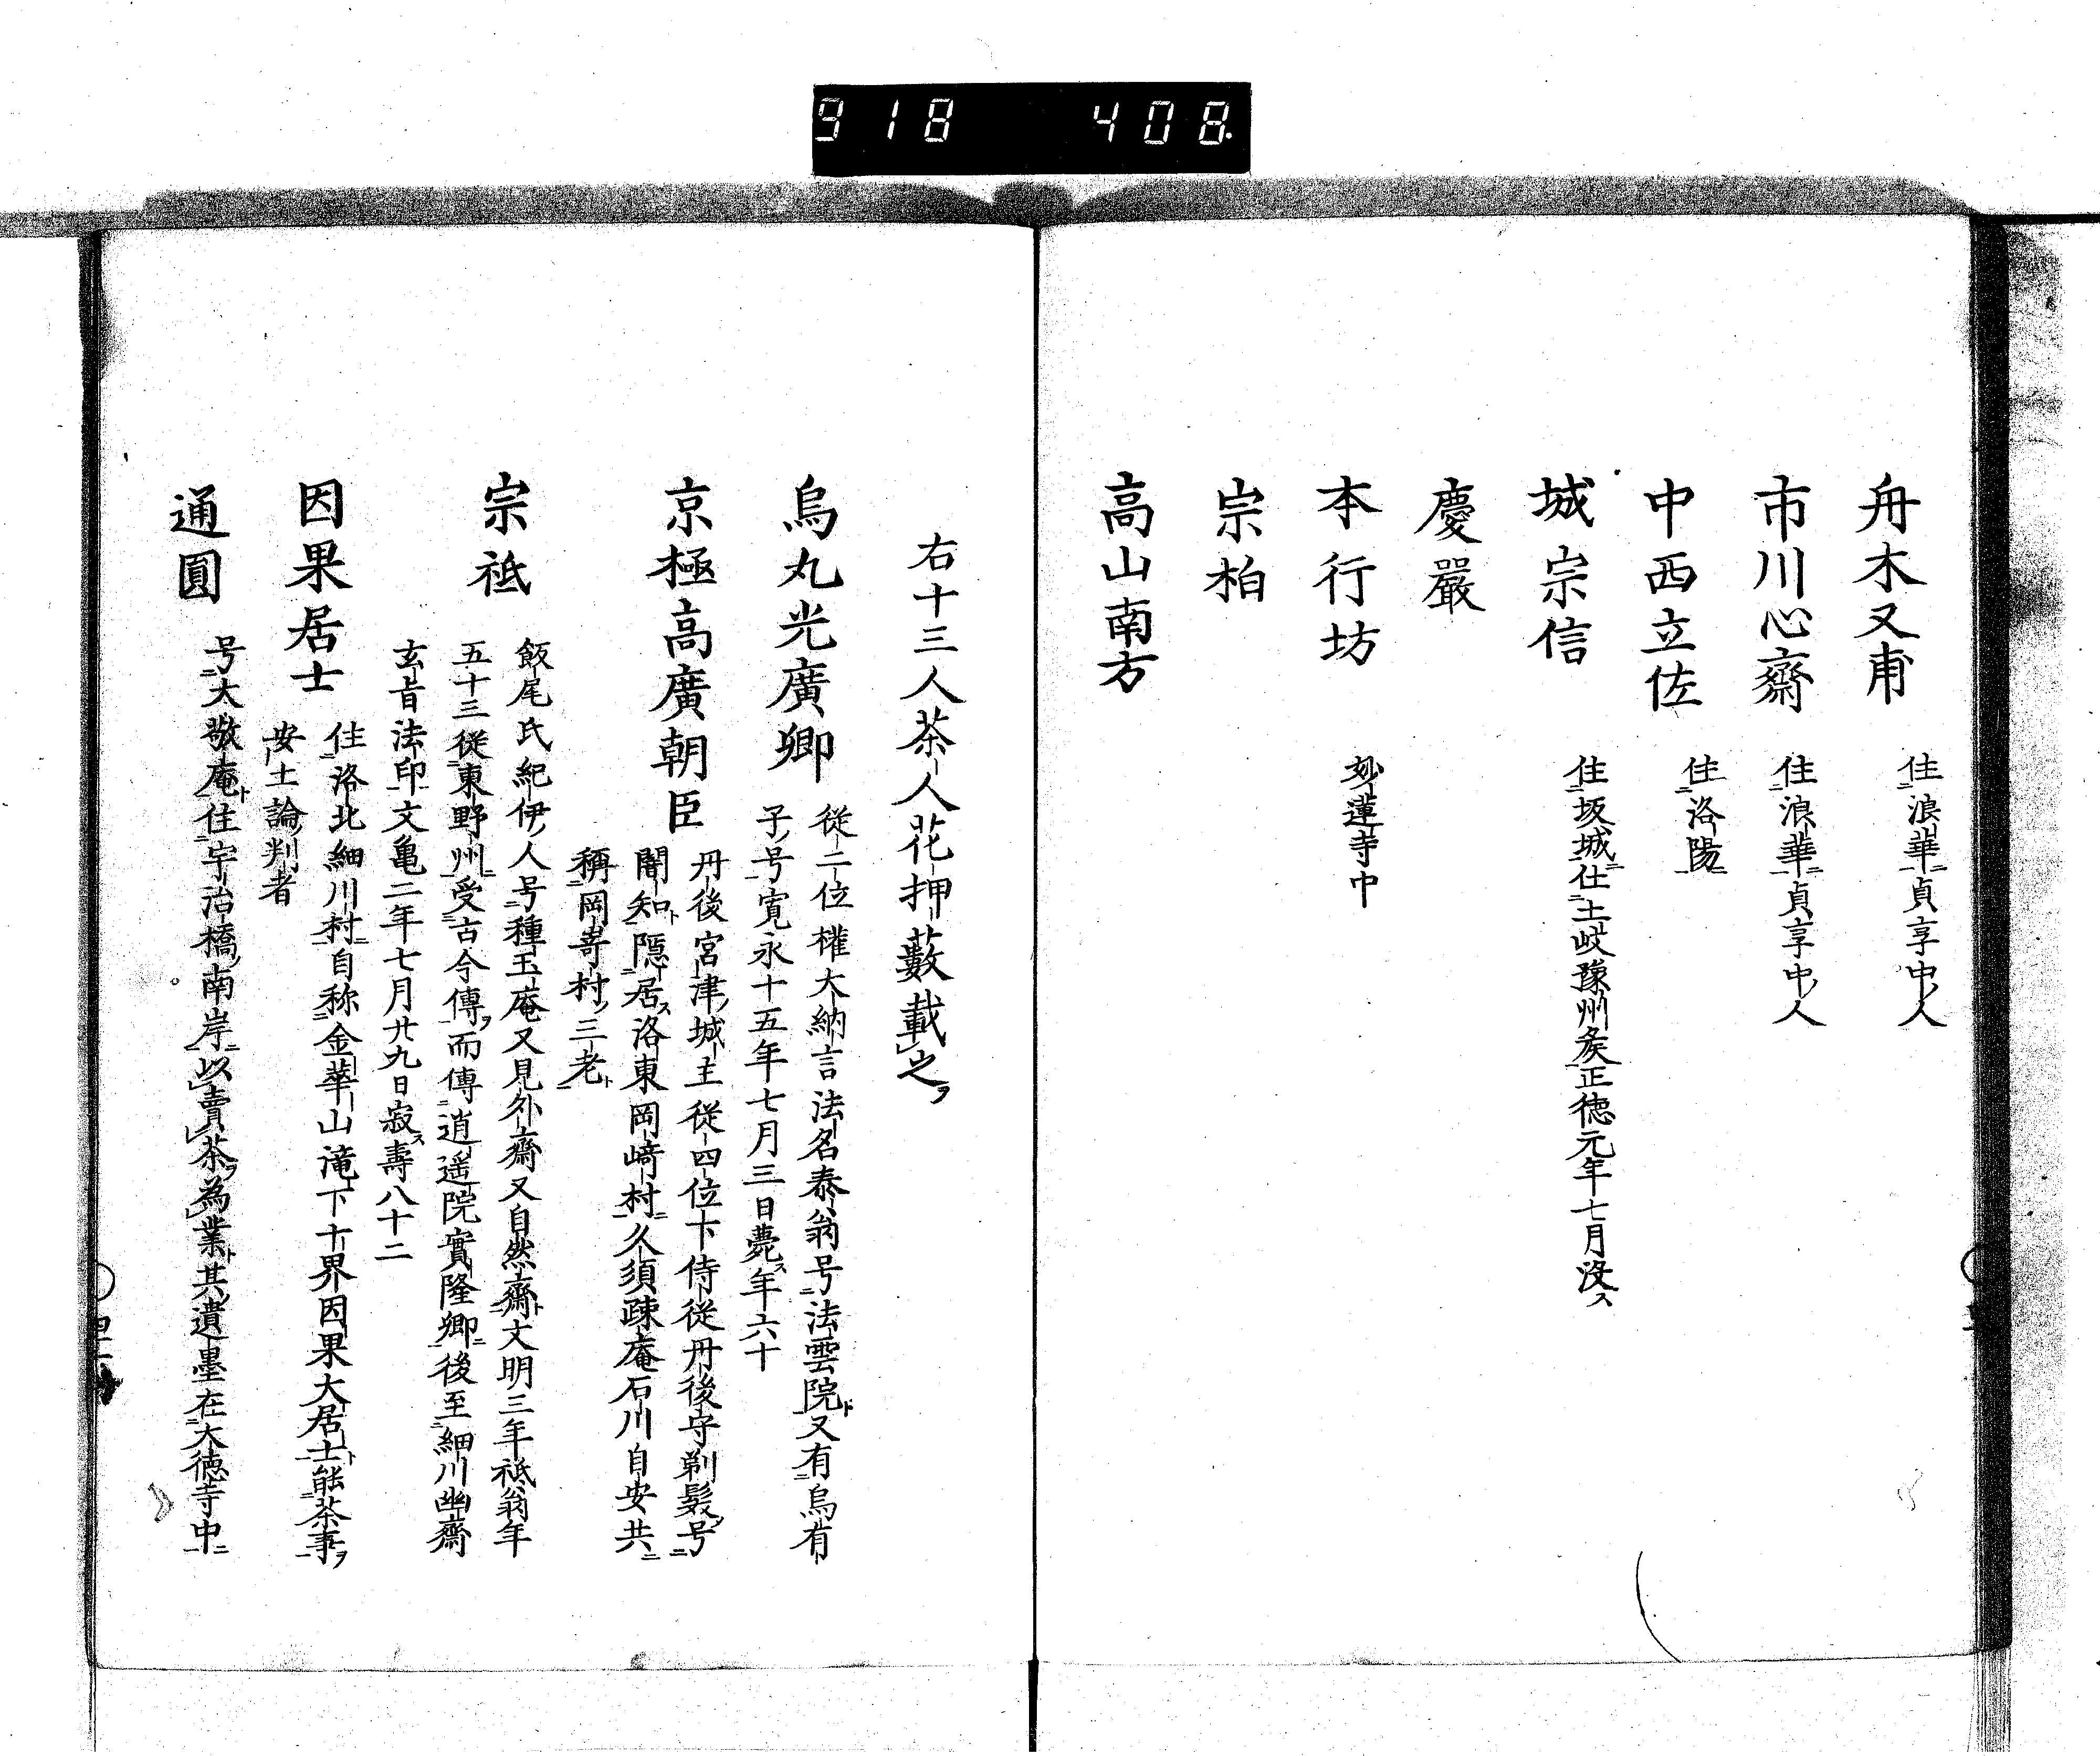 918 408
舟木又甫
住浪華貞享中ノ人
市川心齋
住浪華貞享中ノ人
中西立佐
住洛陽
城宗信
住坂城仕土岐豫州矦正徳元年七月没ス
慶嚴
本行坊
妙蓮寺中
宗柏
高山南方
右十三人茶人花押藪載之ヲ
烏丸光廣卿
從二位權大納言法名泰翁号法雲院ト又有烏有
子ノ号寛永十五年七月三日薨ス年六十
京極高廣朝臣
丹後宮津ノ城主從四位下侍從丹後守剃髮ノ号
闇知ト隱居ス洛東岡﨑村久須疎庵石川自安共
稱岡嵜村ノ三老ト
宗祗
飯尾氏紀伊ノ人号種玉庵又見外齋又自然齋ト文明三年祗翁年
五十三從東野州受古今傳ヲ而傳逍遥院實隆卿後至細川幽齋
玄旨法印文亀二年七月廿九日寂ス壽八十二
因果居士
住洛北細川村自称金華山滝下十界因果大居士ト能茶事ヲ
安土論ノ判者
通圓
号大敬庵ト住宇治橋ノ南岸以賣茶ヲ為業ト其ノ遺墨在大徳寺中